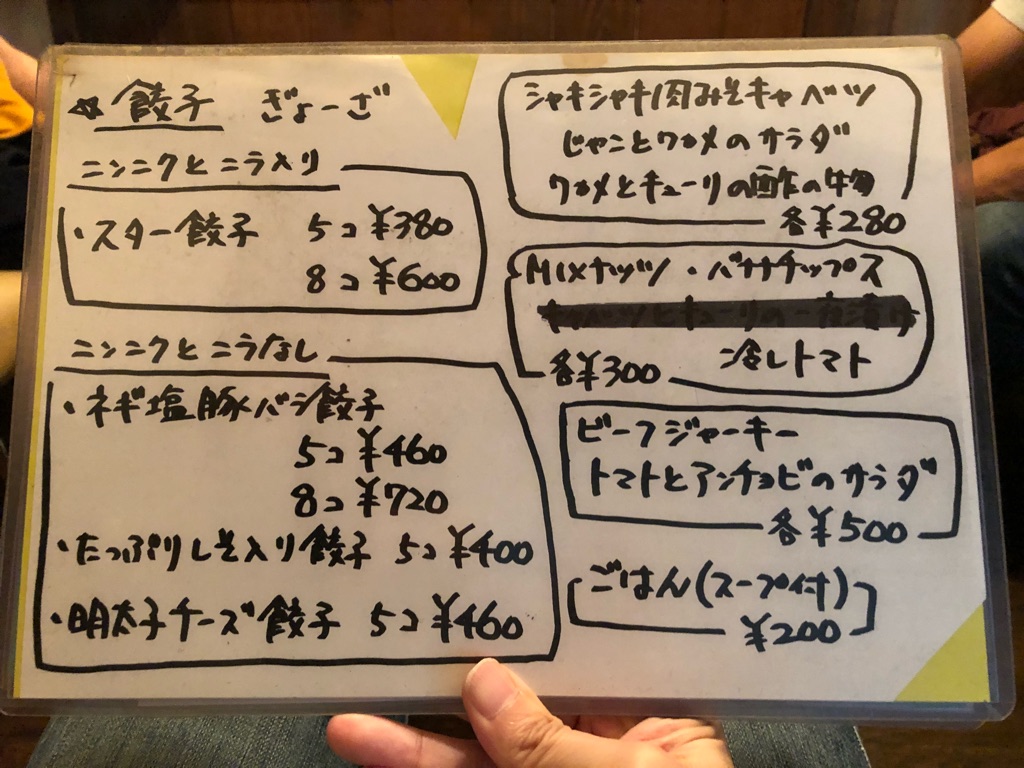 ☆餃子 ぎょーざ
ニンニクとニラ入り
・スター餃子 5コ ¥380
8コ ¥600
ニンニクとニラなし
・ネギ塩豚バシ餃子
5コ ¥460
8コ ¥720
・たっぷりしそ入り餃子 5コ ¥400
・明太子チーズ餃子 5コ ¥460
シャキシャキ肉みそキャベツ
じゃことワカメのサラダ
ワカメとキューリの酢の物
各¥280
MIXナッツ・バナナチップス
冷しトマト
各¥300
ビーフジャーキー
トマトとアンチョビのサラダ
各¥500
ごはん(スープ付)
¥200